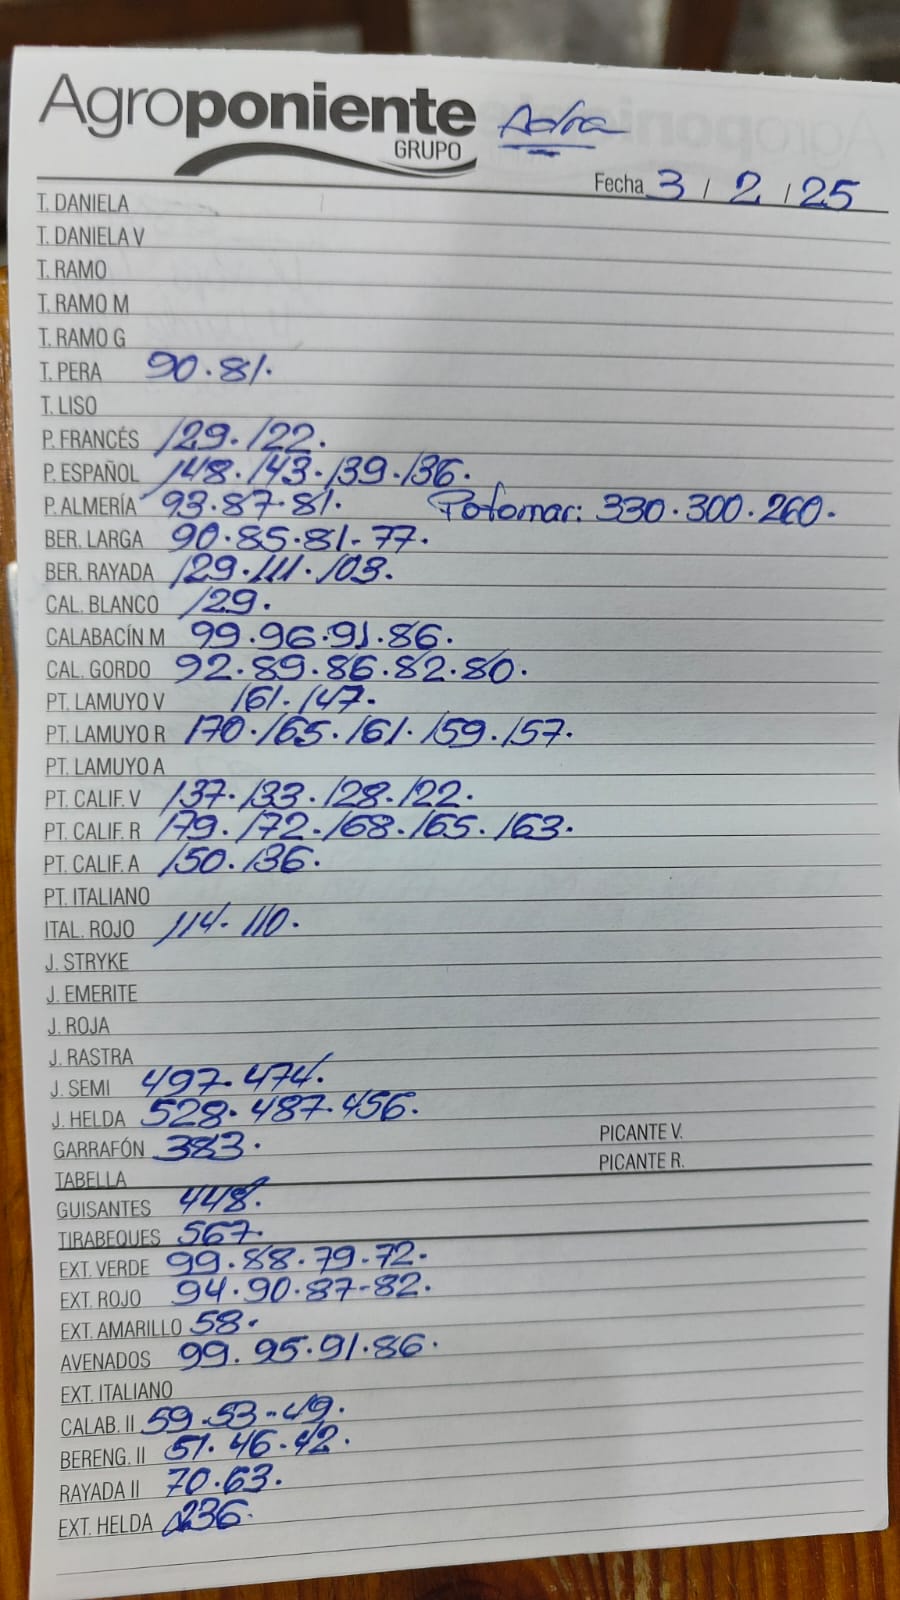 Agroponiente
GRUPO
Adra
Fecha 3 / 2 / 25
T. DANIELA
T. DANIELA V
T. RAMO
T. RAMO M
T. RAMO G
T. PERA 90.81.
T. LISO
P. FRANCÉS 129.122.
P. ESPAÑOL 148.143.139.136.
P. ALMERÍA 93.87.81. Potomar: 330.300.260.
BER. LARGA 90.85.81-77.
BER. RAYADA 129.111.103.
CAL. BLANCO 129.
CALABACÍN M 99.96.91.86.
CAL. GORDO 92.89.86.82.80.
PT. LAMUYO V 161.147.
PT. LAMUYO R 170.165.161.159.157.
PT. LAMUYO A
PT. CALIF. V 137.133.128.122.
PT. CALIF. R 179.172.168.165.163.
PT. CALIF. A 150.136.
PT. ITALIANO
ITAL. ROJO 114.110.
J. STRYKE
J. EMERITE
J. ROJA
J. RASTRA
J. SEMI 497.474.
J. HELDA 528.487.456.
GARRAFÓN 383. PICANTE V.
TABELLA PICANTE R.
GUISANTES 448.
TIRABEQUES 567.
EXT. VERDE 99.88.79-72.
EXT. ROJO 94.90.87-82.
EXT. AMARILLO 58.
AVENADOS 99.95.91.86.
EXT. ITALIANO
CALAB. II 59.53-49.
BERENG. II 51.46.42.
RAYADA II 70.63.
EXT. HELDA 236.